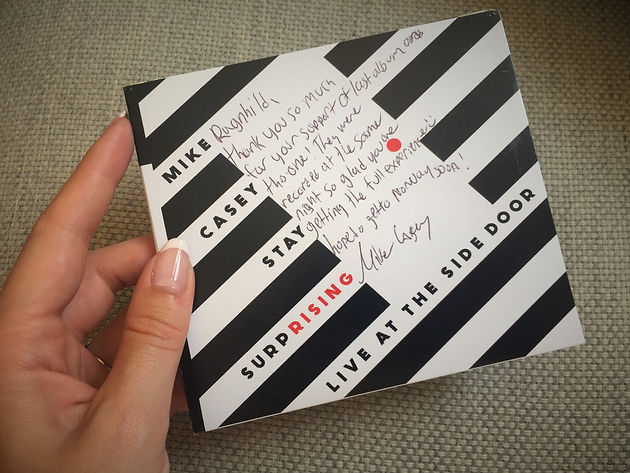 MIKE
CASEY
STAY
SURPRISING
LIVE AT THE SIDE DOOR
Ragnhild,
thank you so much
for your support of last album and
this one! They were
recorded at the same
night so glad you are
getting the full experience
hope to get to norway soon!
Mike Casey